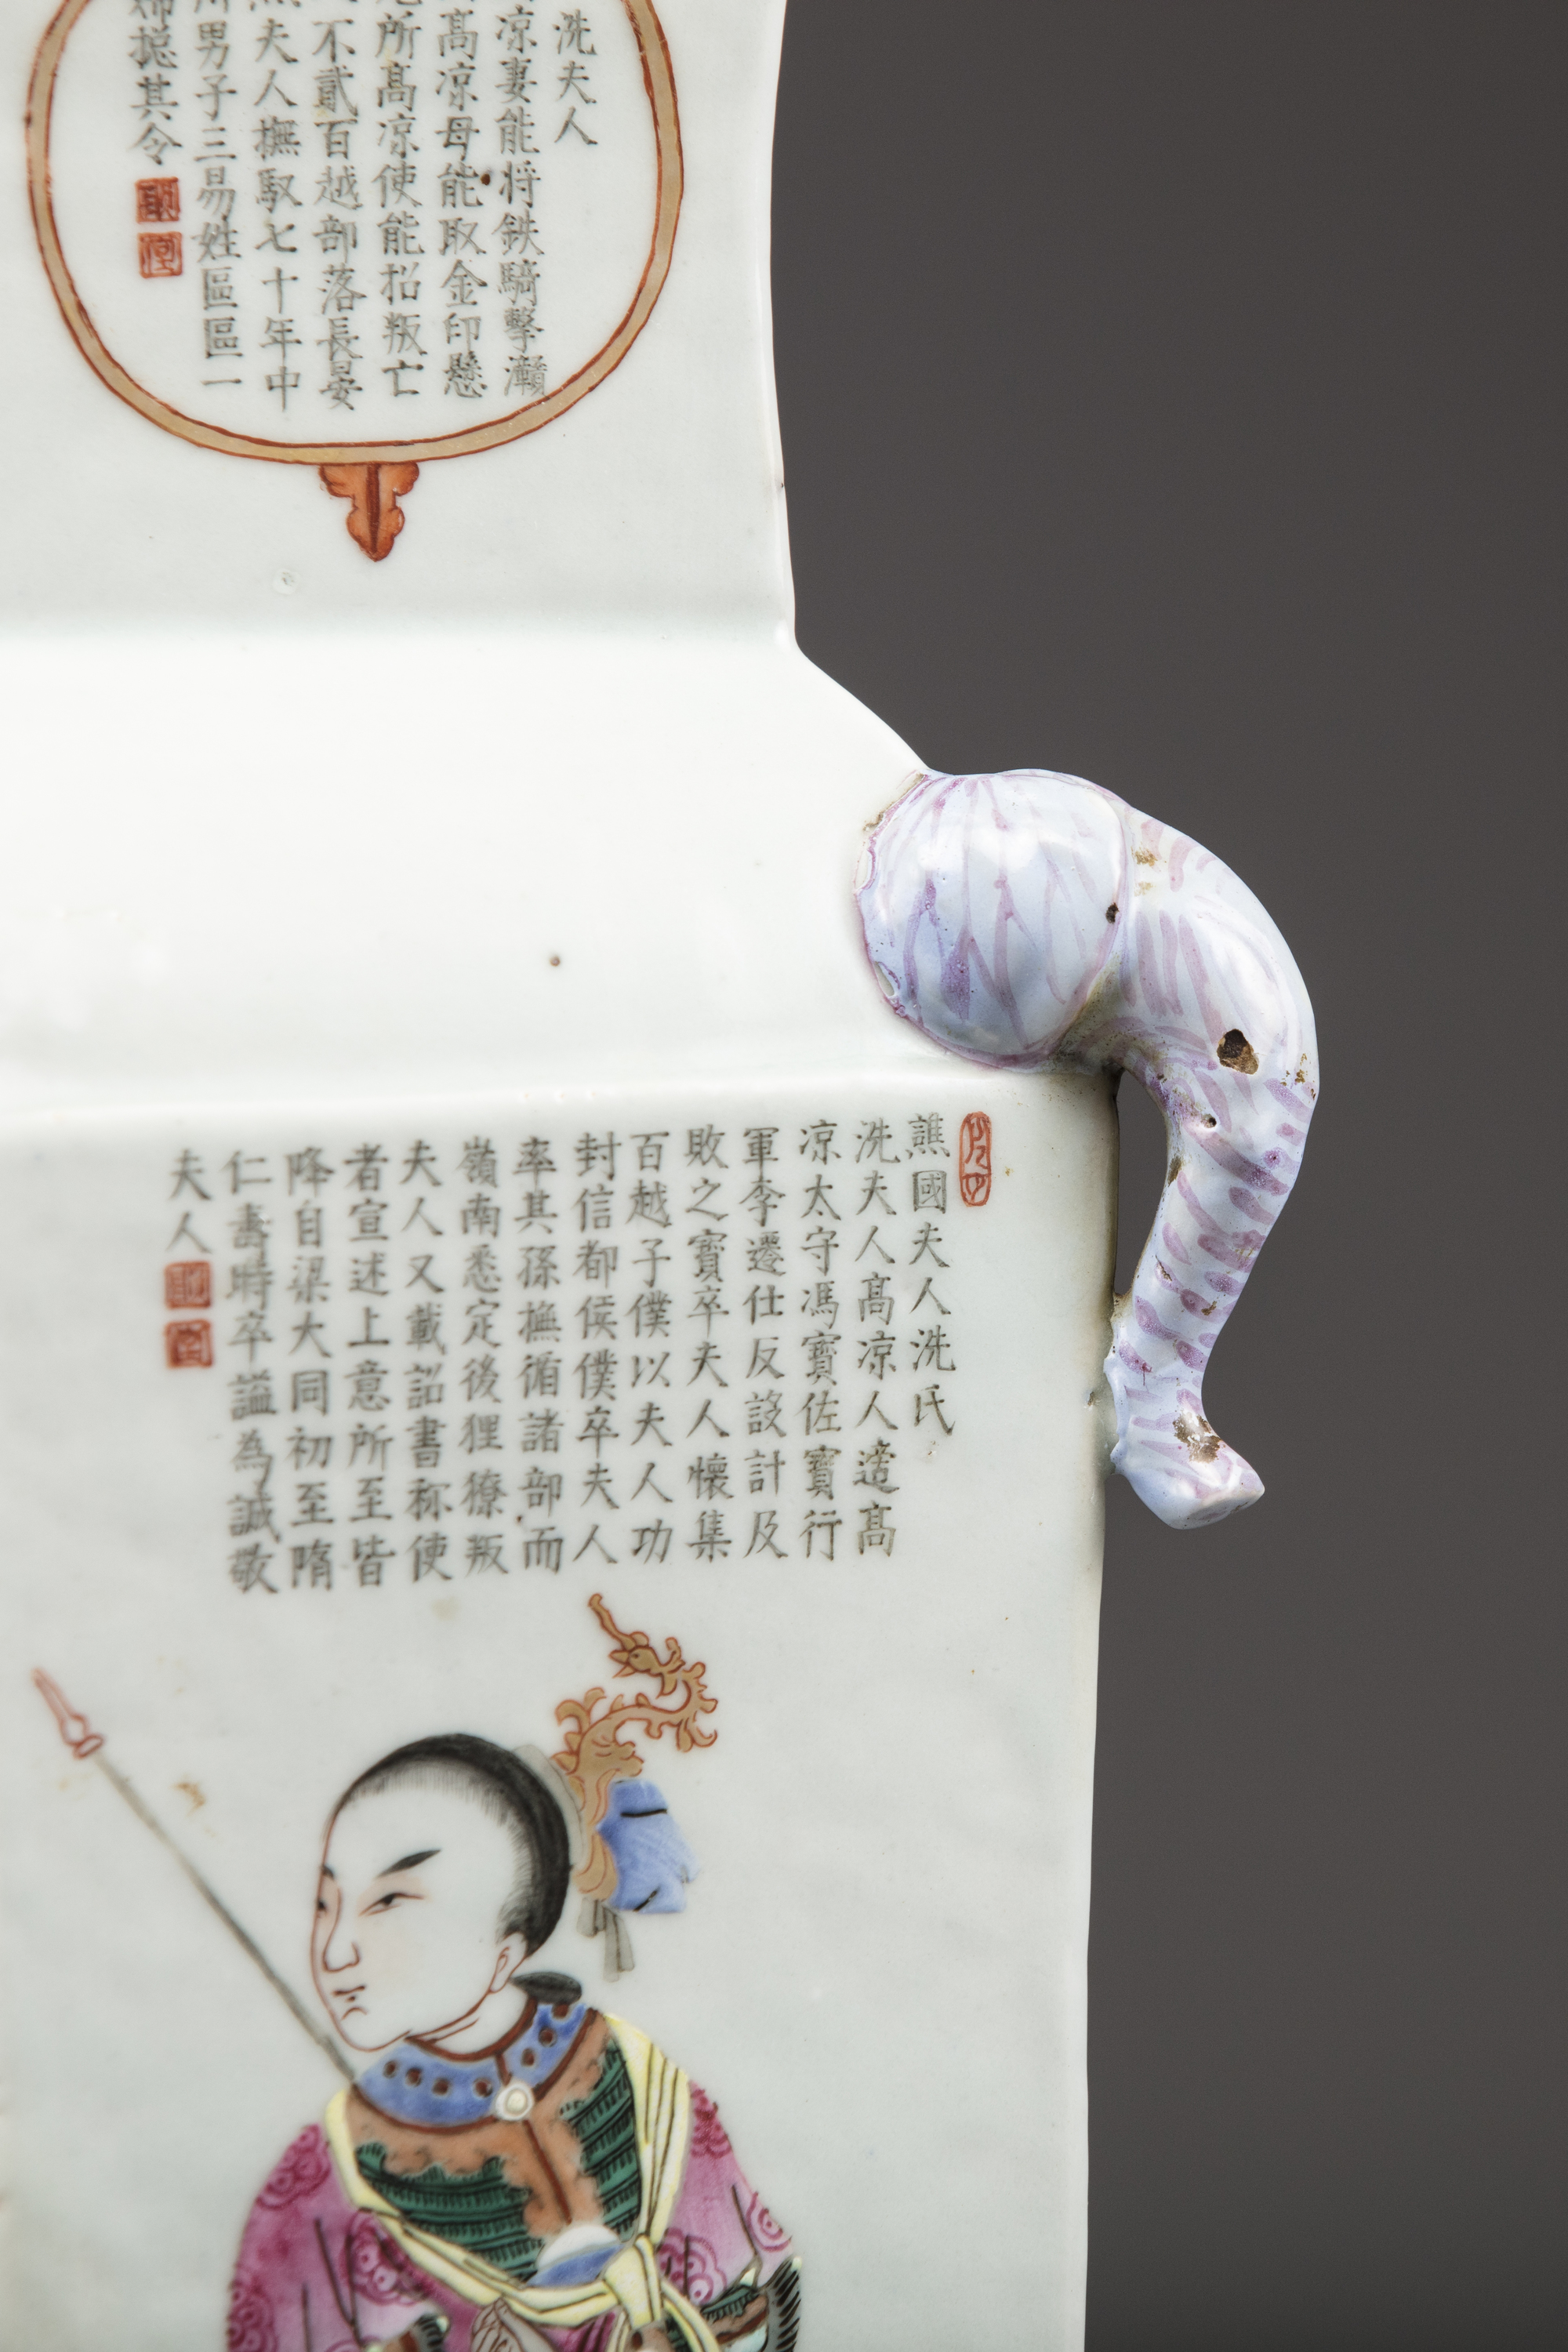 洗夫人
凉妻能将鉄騎擊灘
高凉母能取金印懸
所高凉使能招叛亡
不貳百越部落長晏
夫人撫馭七十年中
男子三易姓區區一
掟其令
譙國夫人洗氏
洗夫人高凉人適高
凉太守馮寶佐寶行
軍李遷仕反設計及
敗之寶卒夫人懷集
百越子僕以夫人功
封信都侯僕卒夫人
率其孫撫循諸部而
嶺南悉定後狸獠叛
夫人又載詔書称使
者宣述上意所至皆
降自梁大同初至隋
仁壽時卒謚為誠敬
夫人